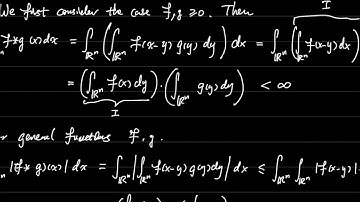 I
We first consider the case f, g ≥ 0. Then
f*g (x) dx = ∫_{ℝⁿ} ( ∫_{ℝⁿ} f(x-y) g(y) dy ) dx = ∫_{ℝⁿ} ( ∫_{ℝⁿ} f(x-y) dx )
= ( ∫_{ℝⁿ} f(x) dy ) · ( ∫_{ℝⁿ} g(y) dy ) < ∞
I
general functions f, g.
|(f*g)(x)| dx = ∫_{ℝⁿ} | ∫_{ℝⁿ} f(x-y) g(y) dy | dx ≤ ∫_{ℝⁿ} ∫_{ℝⁿ} |f(x-y)|